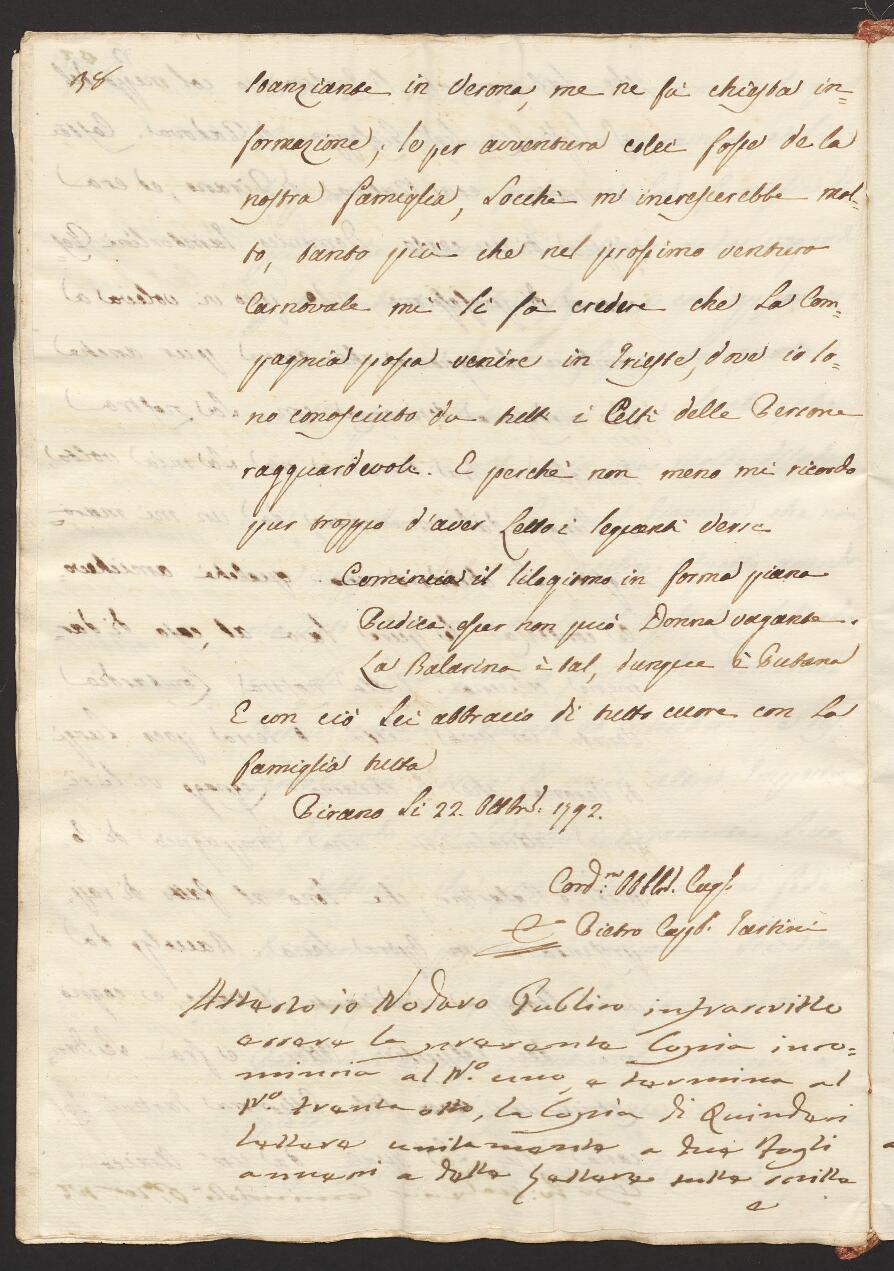 38
stanziante in Verona, me ne fù chiesta in=
formazione, se per avventura colei fosse de la
nostra famiglia, Locchè m'increscerebbe mol=
to, tanto più che nel prossimo venturo
Carnovale mi si fà credere che La Com=
pagnia possa venire in Trieste, dove io so=
no conosciuto da tutti i Cetti delle Persone
ragguardevole. E perchè non meno mi ricordo
pur troppo d'aver Letto i sequenti versi
Comincia il silogismo in forma piana
Pudica esser non può Donna vagante.
La Balarina è tal, dunque è Putana
E con ciò Lei abbraccio di tutto cuore con La
famiglia tutta
Pirano Li 22. Ottbrè. 1792.
Cord.mo Obbl. Cug.
Pietro Cav. Tartini
Attesto io Nodaro Publico infrascritto
essere la presente Copia inco=
mincia al N.o uno, e termina al
N.o trenta otto, la Copia di Quindeci
lettere unitamente a due Fogli
annessi a dette Lettere tutte scritte
e